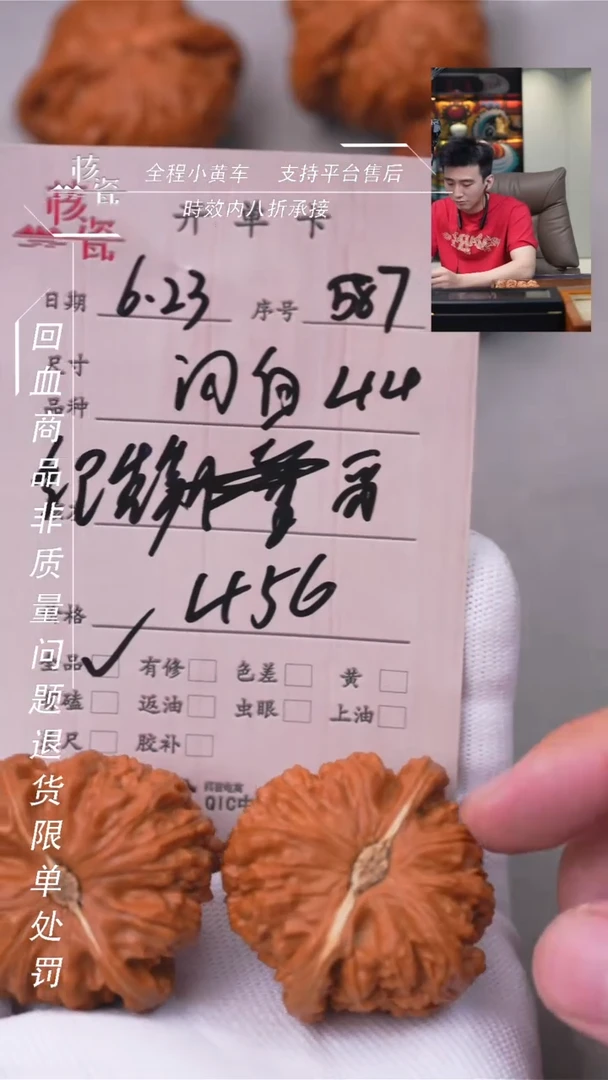 核瓷
全程小黄车 支持平台售后
時效内八折承接
核瓷
开单卡
日期 6.23 序号 587
尺寸
品种 闷白 44
456
格
全品 有修 色差 黄
磕 返油 虫眼 上油
尺 胶补
QIC中
回血商品非质量问题退货限单处罚